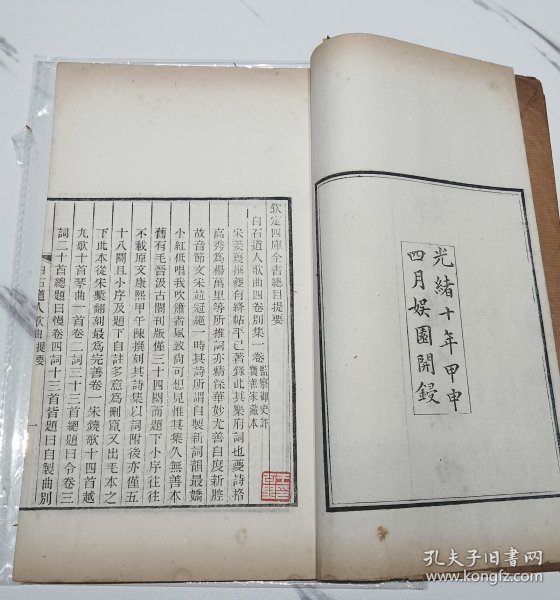 光緒十年甲申
四月娛園開鋟
欽定四庫全書總目提要
白石道人歌曲四卷別集一卷 監察御史許
寶善家藏本
宋姜夔撰夔有絳帖平已著錄此其樂府詞也夔詩格
高秀爲楊萬里等所推詞亦精深華妙尤善自度新腔
故音節文采竝冠絕一時其詩所謂自製新詞韻最嬌
小紅低唱我吹簫者風致尙可想見惟其集久無善本
舊有毛晉汲古閣刊版僅三十四闋而題下小序往往
不載原文康熙甲午陳撰刻其詩集以詞附後亦僅五
十八闋且小序及題下自註多意爲刪竄又出毛本之
下此本從宋槧翻刻最爲完善卷一宋鐃歌十四首越
九歌十首琴曲一首卷二詞三十三首總題曰令卷三
詞二十首總題曰慢卷四詞十三首皆題曰自製曲別
白石道人歌曲提要
一
孔夫子旧书网
www.kongfz.com